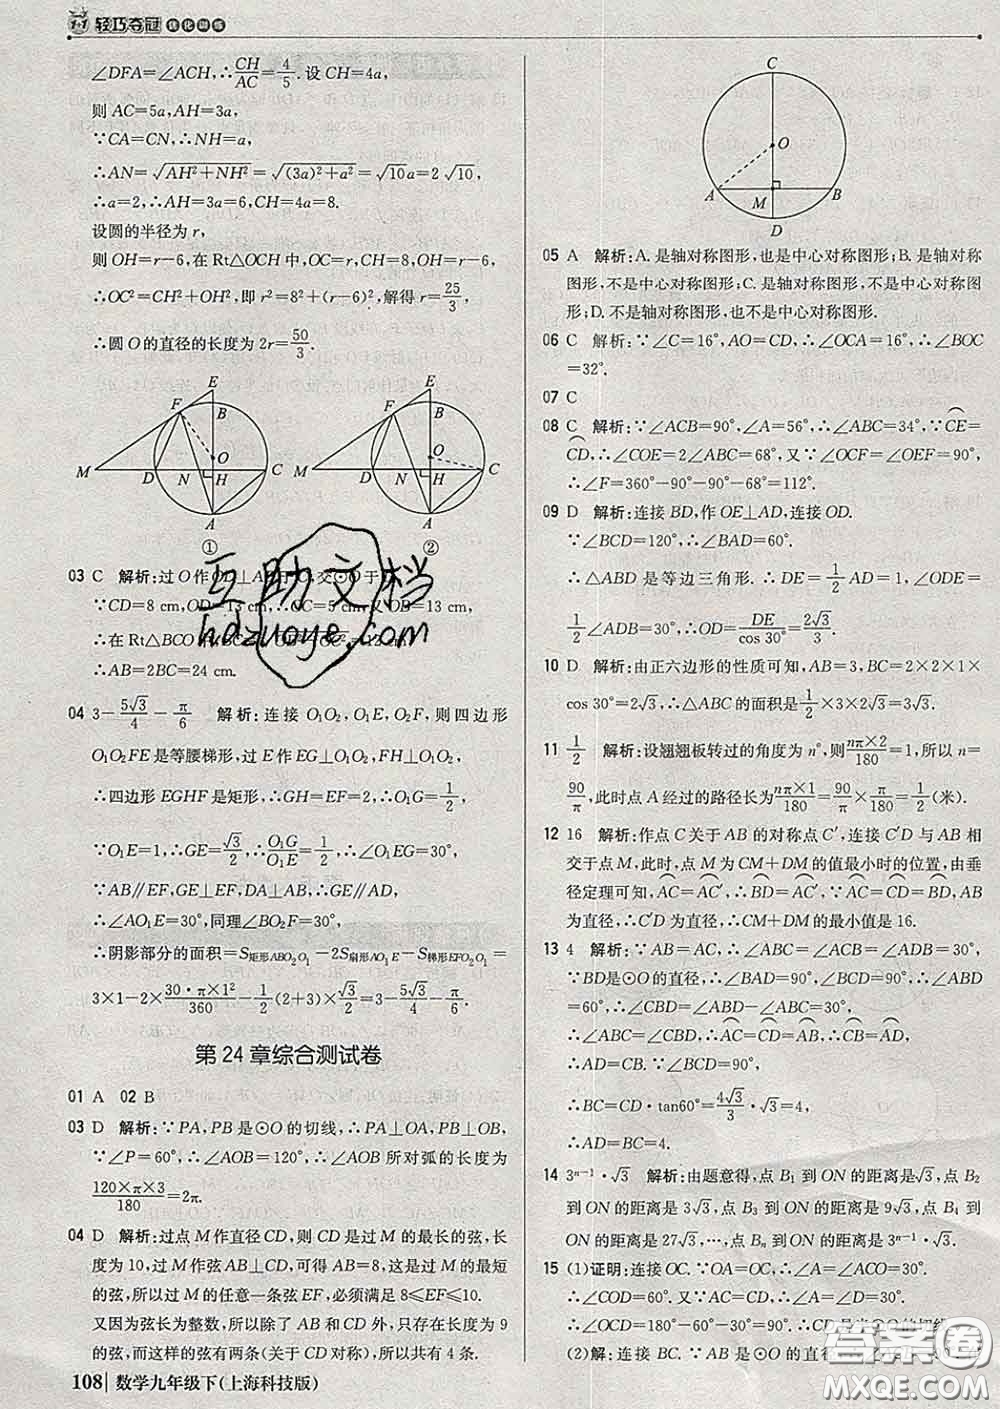 1+1 轻巧夺冠 优化训练
∠DFA=∠ACH,∴CH/AC=4/5. 设CH=4a,
则AC=5a,AH=3a,
∵CA=CN,∴NH=a,
∴AN=√(AH²+NH²)=√((3a)²+a²)=√10a=2√10,
∴a=2,∴AH=3a=6,CH=4a=8.
设圆的半径为r,
则OH=r-6,在Rt△OCH中,OC=r,CH=8,OH=r-6,
∴OC²=CH²+OH²,即r²=8²+(r-6)²,解得r=25/3,
∴圆O的直径的长度为2r=50/3.
E F B O M D N H C A ①
E F B O M D N H C A ②
03 C 解析:过O作OD⊥A
∵CD=8 cm,OD=13 cm,∴OC=5 cm,又∵OB=13 cm,
∴在Rt△BCO
∴AB=2BC=24 cm.
04 3-5√3/4-π/6 解析:连接O₁O₂,O₁E,O₂F,则四边形
O₁O₂FE是等腰梯形,过E作EG⊥O₁O₂,FH⊥O₁O₂,
∴四边形EGHF是矩形,∴GH=EF=2,∴O₁G=1/2,
∵O₁E=1,∴GE=√3/2,∴O₁G/O₁E=1/2,∴∠O₁EG=30°,
∵AB∥EF,GE⊥EF,DA⊥AB,∴GE∥DA,
∴∠AO₁E=30°,同理∠BO₂F=30°,
∴阴影部分的面积=S矩形ABO₂O₁-2S扇形AO₁E-S梯形EFO₂O₁=
3×1-2×30·π×1²/360-1/2(2+3)×√3/2=3-5√3/4-π/6.
第24章综合测试卷
01 A 02 B
03 D 解析:∵PA,PB是⊙O的切线,∴PA⊥OA,PB⊥OB,
∵∠P=60°,∴∠AOB=120°,∴∠AOB所对弧的长度为
120×π×3/180=2π.
04 D 解析:过点M作直径CD,则CD是过M的最长的弦,长
度为10,过M作弦AB⊥CD,可得AB=8,这是过M的最短
的弦,所以过M的任意一条弦EF,必须满足8≤EF≤10.
又因为弦长为整数,所以除了AB和CD外,只存在长度为9
的弦,而这样的弦有两条(关于CD对称),所以共有4条.
108 数学九年级下(上海科技版)
C O A M B D
05 A 解析:A.是轴对称图形,也是中心对称图形;B.是轴对称
图形,不是中心对称图形;C.是轴对称图形,不是中心对称图
形;D.不是轴对称图形,也不是中心对称图形.
06 C 解析:∵∠C=16°,AO=CO,∴∠OCA=16°,∴∠BOC
=32°.
07 C
08 C 解析:∵∠ACB=90°,∠A=56°,∴∠ABC=34°,∵CE=
CD,∴∠COE=2∠ABC=68°,又∵∠OCF=∠OEF=90°,
∴∠F=360°-90°-90°-68°=112°.
09 D 解析:连接BD,作OE⊥AD,连接OD.
∵∠BCD=120°,∴∠BAD=60°.
∴△ABD是等边三角形.∴DE=1/2AD=1,∠ODE=
1/2∠ADB=30°,∴OD=DE/cos 30°=2√3/3.
10 D 解析:由正六边形的性质可知,AB=3,BC=2×2×1×
cos 30°=2√3,∴△ABC的面积是1/2×3×2√3=3√3.
11 1/2 解析:设翘翘板转过的角度为n°,则nπ×2/180=1,所以n=
90/π,此时点A经过的路径长为nπ×1/180=90/180=1/2(米).
12 16 解析:作点C关于AB的对称点C′,连接C′D与AB相
交于点M,此时,点M为CM+DM的值最小时的位置,由垂
径定理可知,AC=AC′,∴BD=AC′.∵AC=CD=BD,AB
为直径,∴C′D为直径,∴CM+DM的最小值是16.
13 4 解析:∵AB=AC,∴∠ABC=∠ACB=∠ADB=30°,
∵BD是⊙O的直径,∴∠BAD=90°,∠BCD=90°,∠ABD
=60°,∴∠CBD=∠ABD-∠ABC=30°,
∴∠ABC=∠CBD,∴AC=CD=AB,∴CB=AD,
∴AD=CB.∵∠BCD=90°,
∴BC=CD·tan60°=4√3/3·√3=4,
∴AD=BC=4.
14 3ⁿ⁻¹·√3 解析:由题意得,点B₁到ON的距离是√3,点B₂
到ON的距离是3√3,点B₃到ON的距离是9√3,点B₄到
ON的距离是27√3,…,点Bₙ到ON的距离是3ⁿ⁻¹·√3.
15 (1)证明:连接OC.∵OA=OC,∴∠A=∠ACO=30°.
∴∠COD=60°.又∵∠D=30°,
∴∠OCD=180°-60°-30°=90°.∴CD是⊙O的切线
(2)解:∵⊙O的直径
互助文档
hdzuoye.com
答案圈
MXQE.COM